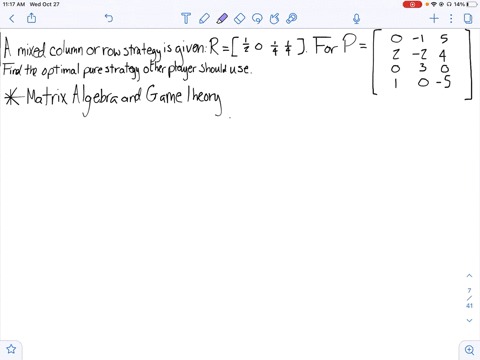 11:17 AM Wed Oct 27
14%
A mixed column or row strategy is given: R = [ 1/2 0 1/4 1/4 ]. For P = [ 0 -1 5
2 -2 4
0 3 0
1 0 -5 ]
Find the optimal pure strategy other player should use.
* Matrix Algebra and Game Theory
7
/
41